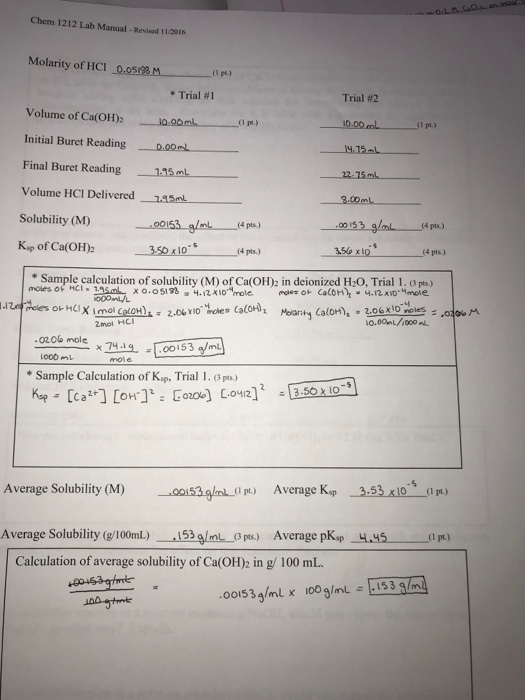 Chem 1212 Lab Manual - Revised 11/2016
Molarity of HCl 0.05188 M (1 pt.)
* Trial #1 Trial #2
Volume of Ca(OH)₂ 10.00mL (1 pt.) 10.00 mL (1 pt.)
Initial Buret Reading 0.00ml 14.75mL
Final Buret Reading 7.95ml 22.75ml
Volume HCl Delivered 7.95ml 8.00mL
Solubility (M) .00153 g/mL (4 pts.) .00153 g/mL (4 pts.)
Ksp of Ca(OH)₂ 3.50 x10⁻⁵ (4 pts.) 3.56 x10⁻⁵ (4 pts.)
* Sample calculation of solubility (M) of Ca(OH)₂ in deionized H₂O, Trial 1. (3 pts.)
moles of HCl = 7.95mL x 0.05188 = 4.12x10⁻⁴mole moles of Ca(OH)₂ = 4.12x10⁻⁴mole
1000mL/L
moles of HCl x 1mol Ca(OH)₂ = 2.06x10⁻⁴moles Ca(OH)₂ Molarity Ca(OH)₂ = 2.06x10⁻⁴moles = .0206 M
2mol HCl 10.00mL/1000mL
.0206 mole x 74.1g = .00153 g/mL
1000 mL mole
* Sample Calculation of Ksp, Trial 1. (3 pts.)
Ksp = [Ca²⁺] [OH⁻]² = [.0206] [.0412]² = 3.50 x 10⁻⁵
Average Solubility (M) .00153g/mL (1 pt.) Average Ksp 3.53 x10⁻⁵ (1 pt.)
Average Solubility (g/100mL) .153g/mL (3 pts.) Average pKsp 4.45 (1 pt.)
Calculation of average solubility of Ca(OH)₂ in g/ 100 mL.
.00153g/mL = .00153g/mL x 100g/mL = .153 g/mL
100 g/mL